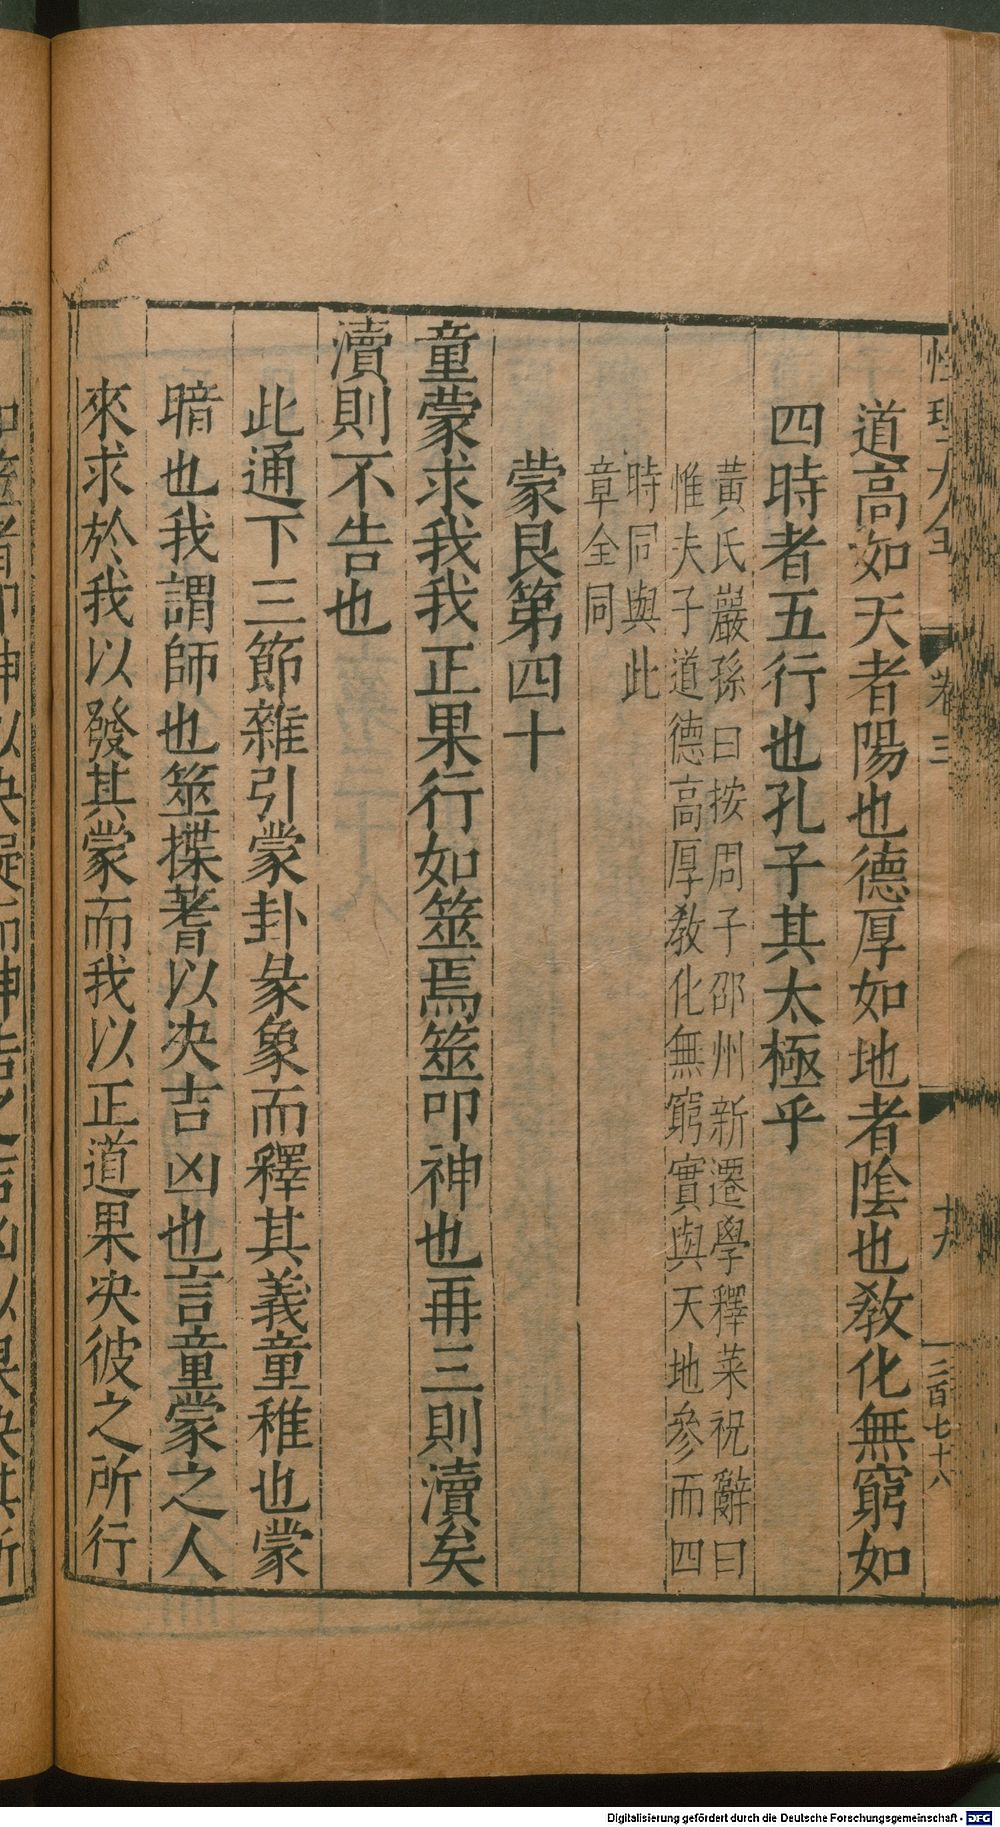 性理大全 卷三 十九 二百七十八
道高如天者陽也德厚如地者陰也敎化無窮如
四時者五行也孔子其太極乎
黃氏巖孫曰按周子邵州新遷學釋菜祝辭曰
惟夫子道德高厚敎化無窮實與天地參而四
時同與此
章全同
蒙艮第四十
童蒙求我我正果行如筮焉筮叩神也再三則瀆矣
瀆則不告也
此通下三節雜引蒙卦彖象而釋其義童稚也蒙
暗也我謂師也筮揲蓍以決吉凶也言童蒙之人
來求於我以發其蒙而我以正道果決彼之所行
如筮者叩神以決疑而神告之吉凶以果決其所
Digitalisierung gefördert durch die Deutsche Forschungsgemeinschaft - DFG